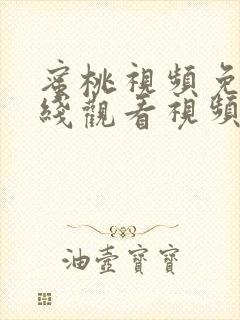 蜜桃視頻免
綫觀看視頻
油壺寶寶